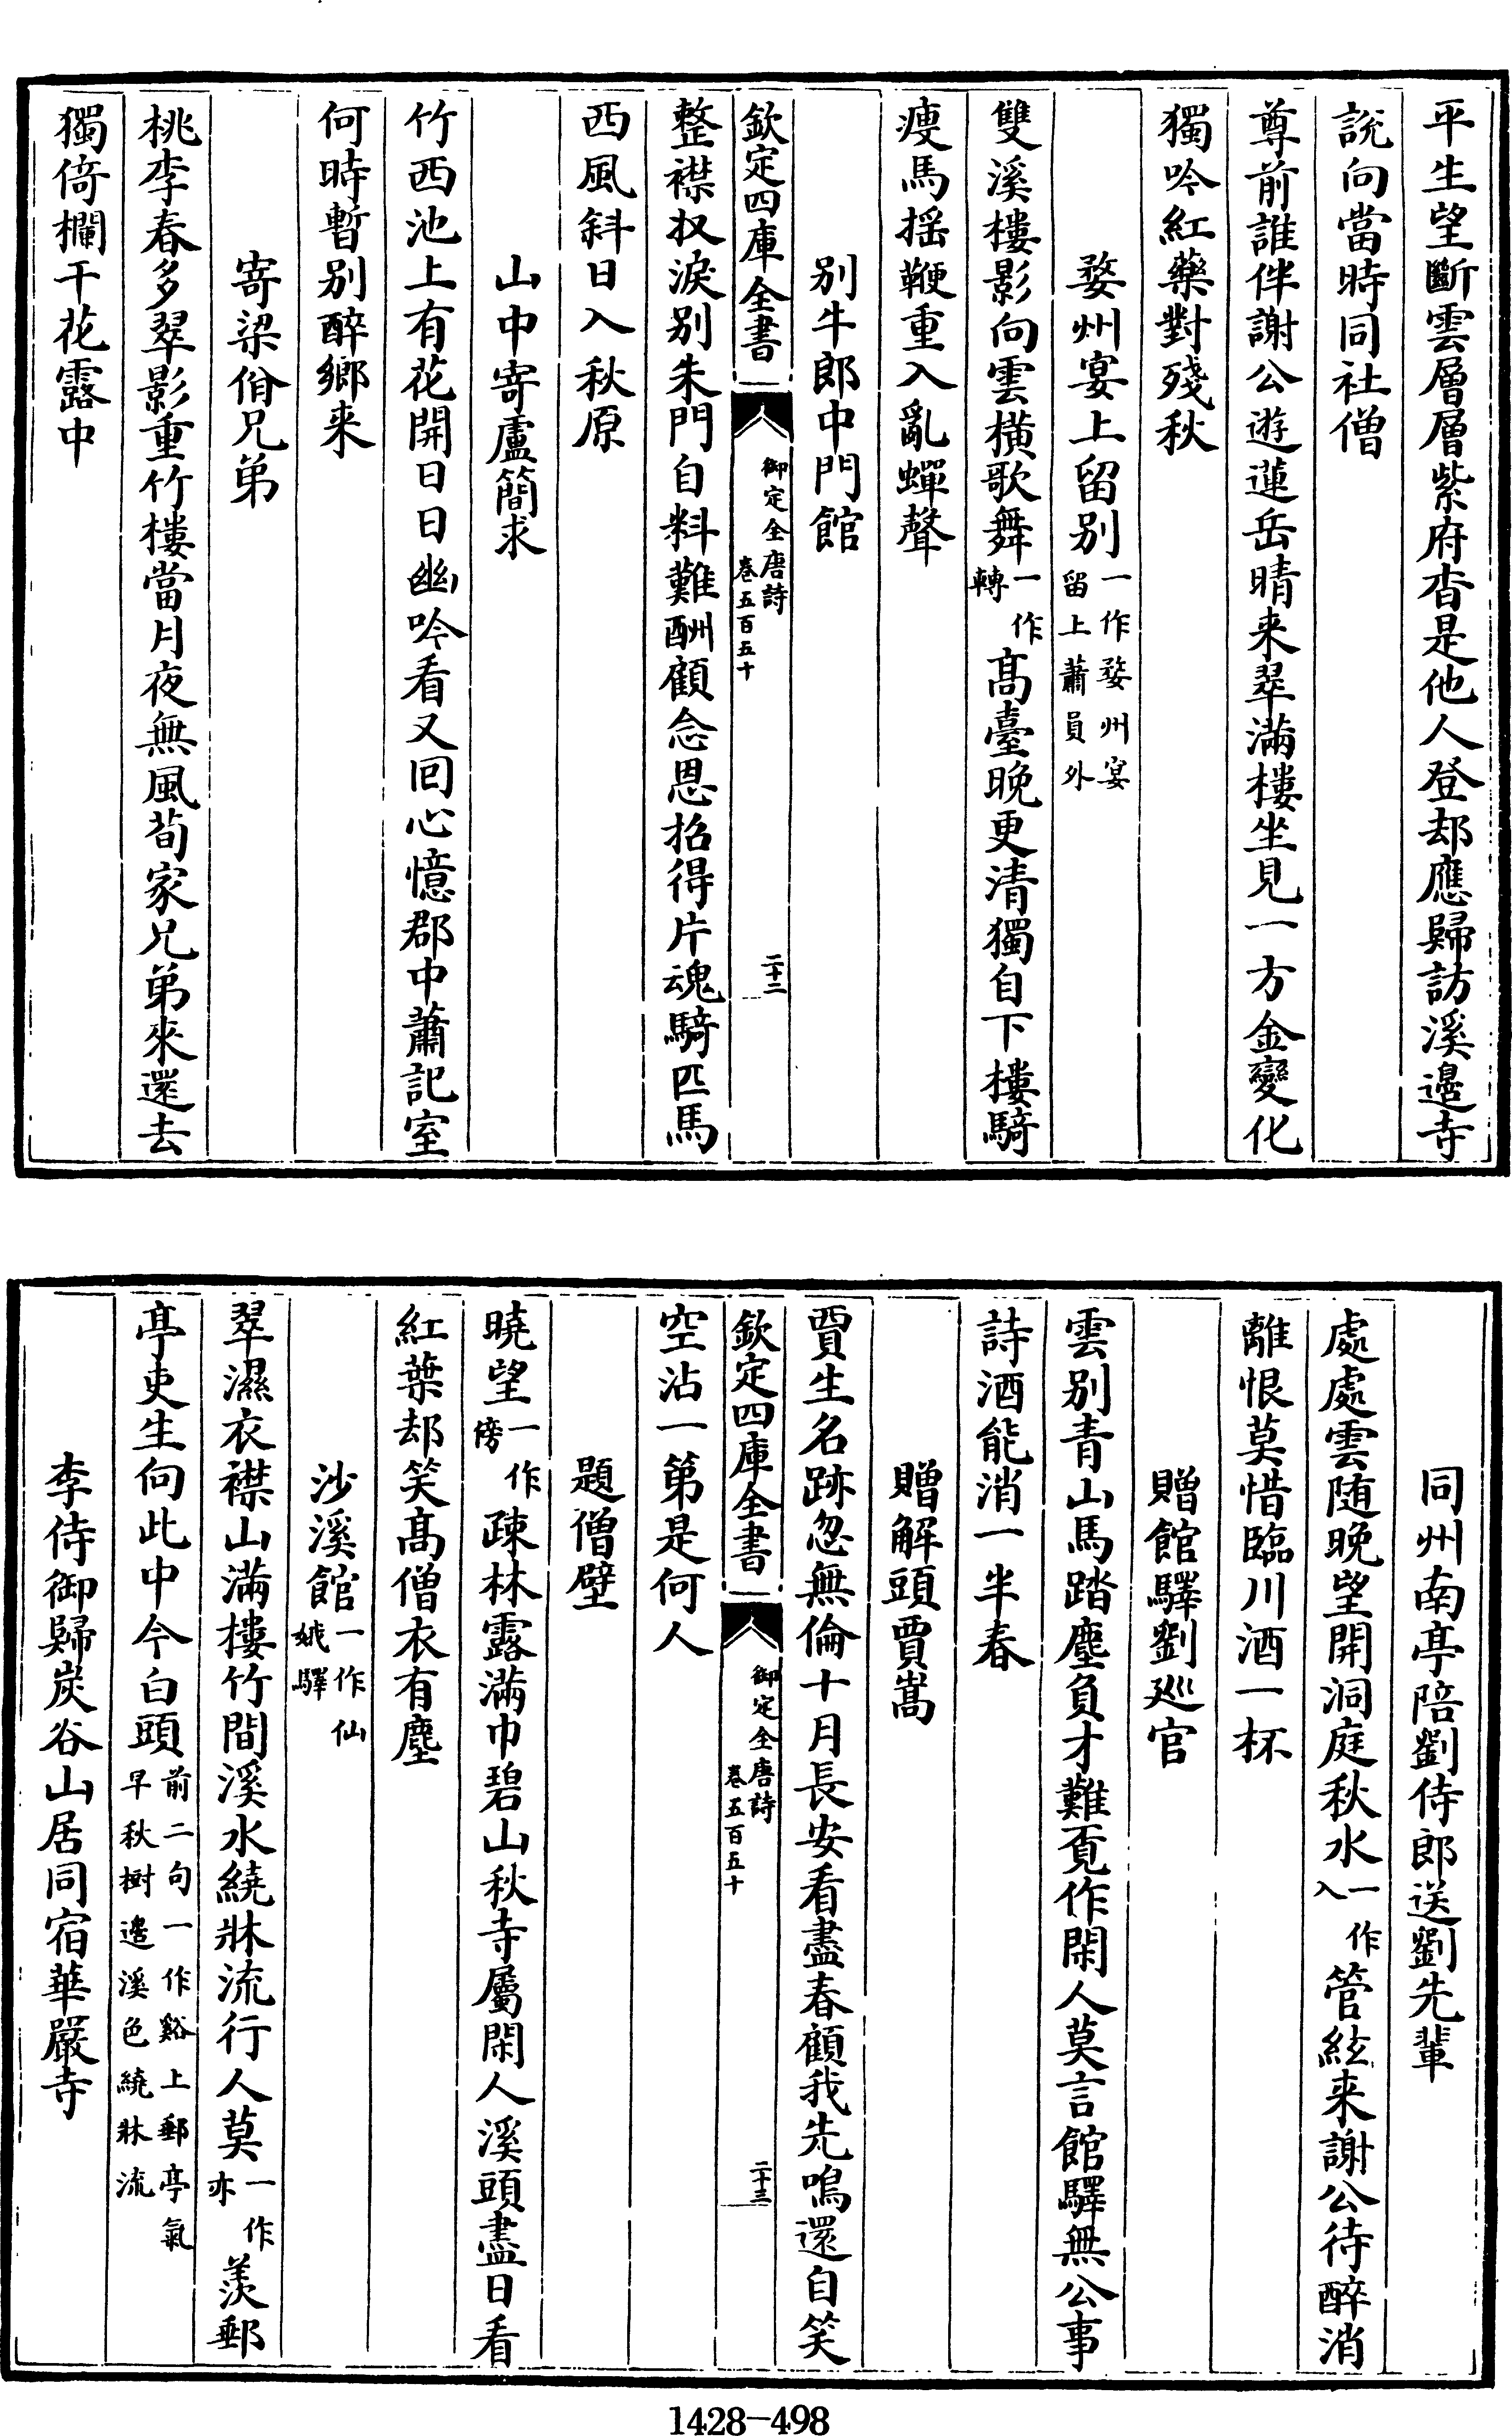 平生望斷雲層層紫府杳是他人登却應歸訪溪邉寺
說向當時同社僧
尊前誰伴謝公遊蓮岳晴来翠滿樓坐見一方金變化
獨吟紅藥對殘秋
婺州宴上留别一作婺州宴留上蕭員外
雙溪樓影向雲横歌舞一作轉髙臺晚更清獨自下樓騎
瘦馬揺鞭重入亂蟬聲
别牛郎中門館
欽定四庫全書
御定全唐詩
卷五百五十
二十二
整襟收淚别朱門自料難酬顧念恩招得片魂騎匹馬
西風斜日入秋原
山中寄盧簡求
竹西池上有花開日日幽吟看又回心憶郡中蕭記室
何時暫别醉鄉来
寄梁佾兄弟
桃李春多翠影重竹樓當月夜無風荀家兄弟來還去
獨倚欄干花露中
同州南亭陪劉侍郎送劉先輩
處處雲随晚望開洞庭秋水一作入管絃来謝公待醉消
離恨莫惜臨川酒一杯
贈館驛劉廵官
雲别青山馬踏塵負才難覔作閑人莫言館驛無公事
詩酒能消一半春
贈解頭賈嵩
賈生名跡忽無倫十月長安看盡春顧我先鳴還自笑
欽定四庫全書
御定全唐詩
卷五百五十
二十三
空沾一第是何人
題僧壁
曉望一作傍疎林露滿巾碧山秋寺屬閑人溪頭盡日看
紅葉却笑髙僧衣有塵
沙溪館一作仙娥驛
翠濕衣襟山滿樓竹間溪水繞牀流行人莫一作亦羨郵
亭吏生向此中今白頭前二句一作谿上郵亭氣早秋樹邉溪色繞牀流
李侍御歸炭谷山居同宿華嚴寺
1428—498